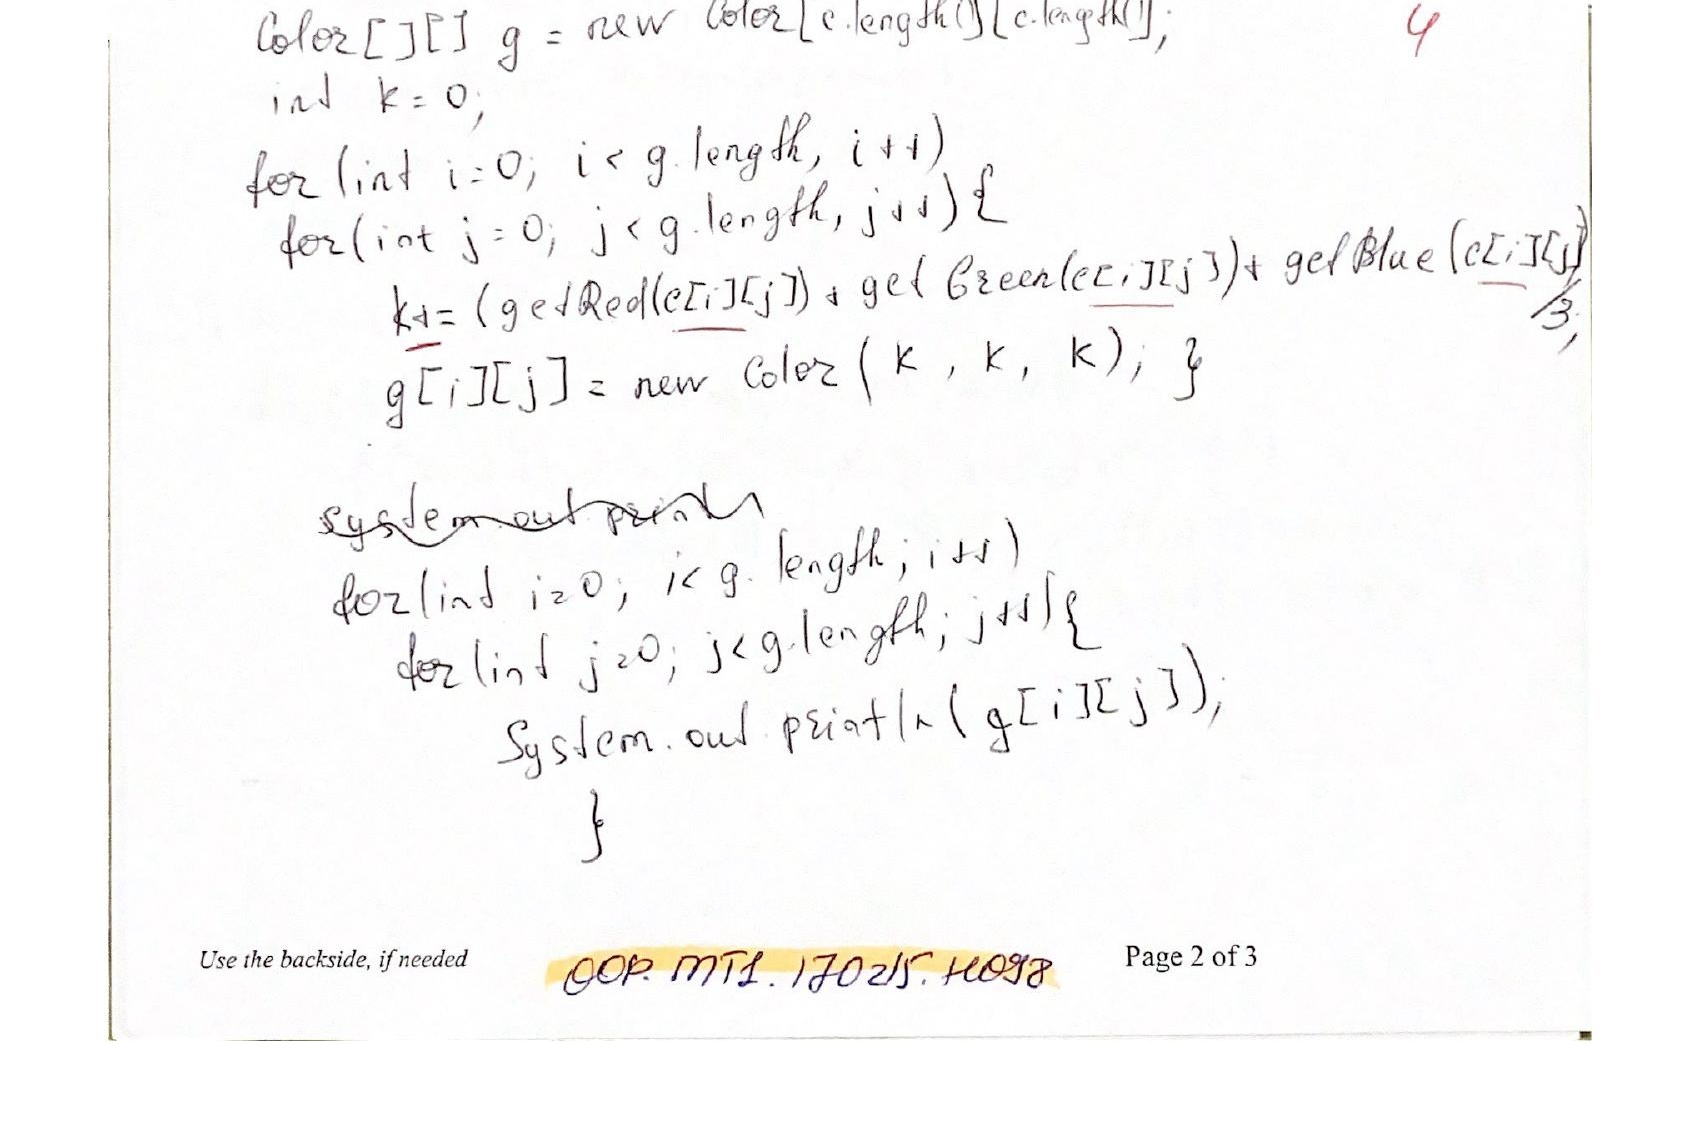 Color[][] g = new Color[c.length()][c.length()]; 4
int k = 0;
for (int i=0; i< g.length, i++)
for(int j=0; j<g.length, j++){
k+= (getRed(c[i][j]) + getGreen(c[i][j])+ getBlue(c[i][j])
/3;
g[i][j] = new Color (k, k, k); }
system out println
for(int i=0; i<g.length; i++)
for(int j=0; j<g.length; j++){
System.out.println(g[i][j]);
}
Use the backside, if needed OOP. MT1. 170215. H098 Page 2 of 3